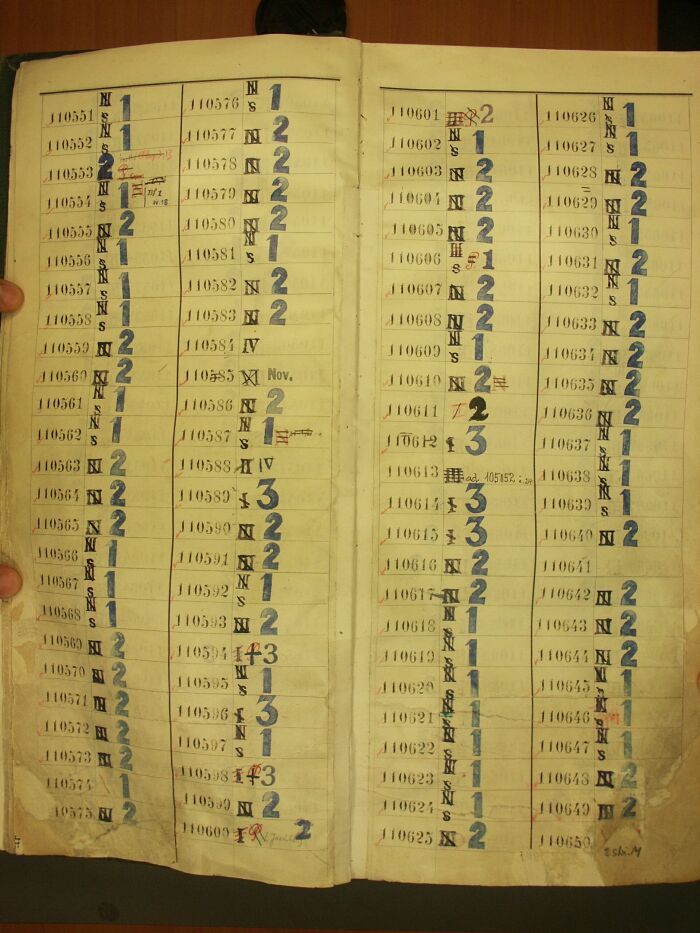 110551 N s 1
110552 N s 1
110553 2
110554 N s 1
110555 N 2
110556 N s 1
110557 N s 1
110558 N s 1
110559 N 2
110560 N 2
110561 N s 1
110562 N s 1
110563 N 2
110564 N 2
110565 N 2
110566 N s 1
110567 N s 1
110568 N s 1
110569 N 2
110570 N 2
110571 N 2
110572 N 2
110573 N 2
110574 1
110575 N 2
110576 N s 1
110577 N 2
110578 N 2
110579 N 2
110580 N 2
110581 N s 1
110582 N 2
110583 N 2
110584 IV
110585 XI Nov.
110586 N 2
110587 N s 1
110588 II IV
110589 I 3
110590 N 2
110591 N 2
110592 N s 1
110593 N 2
110594 I 3
110595 N s 1
110596 I 3
110597 N s 1
110598 I 3
110599 N 2
110600 I 2
110601 2
110602 N s 1
110603 N 2
110604 N 2
110605 N 2
110606 III s 1
110607 N 2
110608 N 2
110609 N s 1
110610 N 2
110611 2
110612 I 3
110613 III ad 105852
110614 I 3
110615 I 3
110616 N 2
110617 N 2
110618 N s 1
110619 N s 1
110620 N s 1
110621 N s 1
110622 N s 1
110623 N s 1
110624 N s 1
110625 N 2
110626 N s 1
110627 N s 1
110628 N 2
110629 N 2
110630 N s 1
110631 N 2
110632 N s 1
110633 N 2
110634 N 2
110635 N 2
110636 N 2
110637 N s 1
110638 N s 1
110639 N s 1
110640 N 2
110641
110642 N 2
110643 N 2
110644 N 2
110645 N s 1
110646 N s 1
110647 N s 1
110648 N 2
110649 N 2
110650